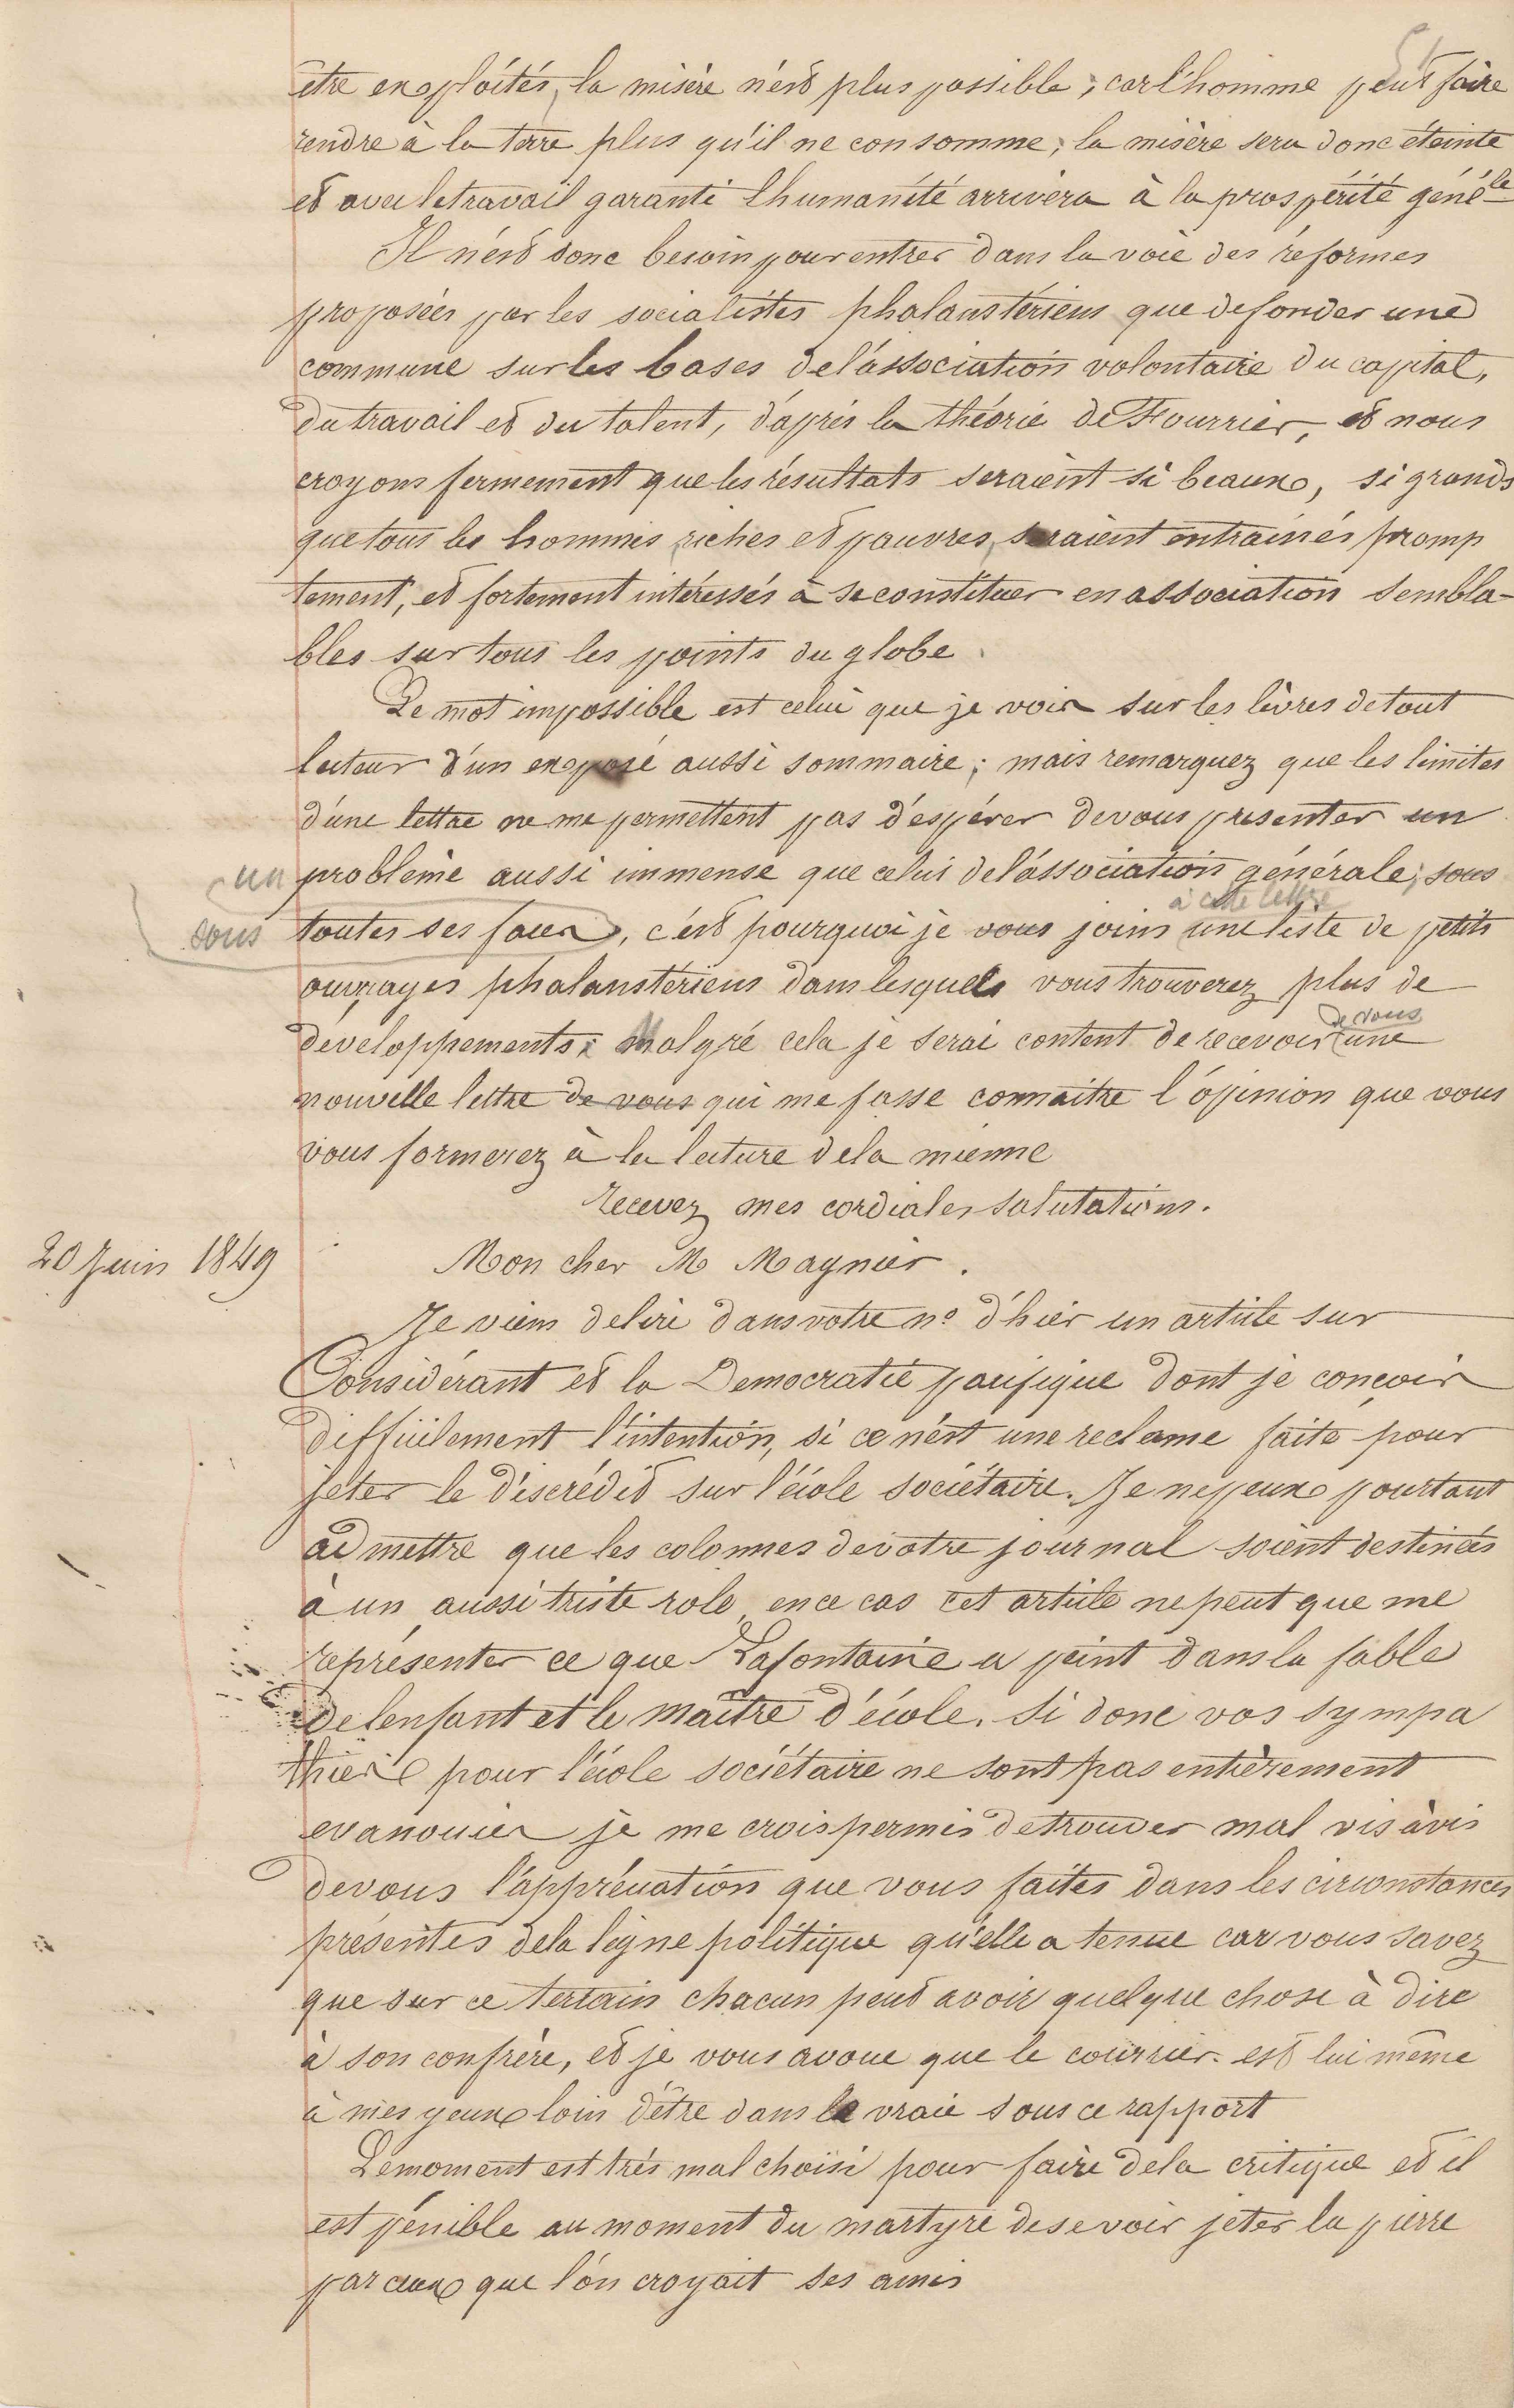 51
être exploités, la misère n'est plus possible ; car l'homme peut faire
rendre à la terre plus qu'il ne consomme ; la misère sera donc éteinte
et avec le travail garanti l'humanité arrivera à la prospérité généle
Il n'est donc besoin pour entrer dans la voie des réformes
proposées par les socialistes phalanstériens que de fonder une
commune sur les bases de l'association volontaire du capital,
du travail et du talent, d'après la théorie de Fourrier, et nous
croyons fermement que les résultats seraient si beaux, si grands
que tous les hommes, riches et pauvres, seraient entrainés promp
tement, et fortement intéressés à se constituer en association sembla-
bles sur tous les points du globe.
Le mot impossible est celui que je vois sur les lèvres de tout
lecteur d'un exposé aussi sommaire ; mais remarquez que les limites
d'une lettre ne me permettent pas d'espérer de vous présenter un
un problême aussi immense que celui de l'association générale, sous
à cette lettre
sous toutes ses faces, c'est pourquoi je vous joins une liste de petits
ouvrages phalanstériens dans lesquels vous trouverez plus de
de vous
développements ; Malgré cela je serai content de recevoir une
nouvelle lettre de vous qui me fasse connaitre l'opinion que vous
vous formerez à la lecture de la mienne
recevez mes cordiales salutations.
20 Juin 1849 Mon cher M Magnier.
Je viens de lire dans votre n° d'hier un article sur
Considérant et la Democratie pacifique dont je conçois
difficilement l'intention, si ce n'est une reclame faite pour
jeter le discrédit sur l'école sociétaire. Je ne peux pourtant
admettre que les colonnes de votre journal soient destinées
à un aussi triste role, en ce cas cet article ne peut que me
représenter ce que Lafontaine a peint dans la fable
de lenfant et le maître d'école. Si donc vos sympa
thies pour l'école sociétaire ne sont pas entièrement
evanouies je me crois permis de trouver mal vis à vis
de vous l'appréciation que vous faites dans les circonstances
présentes de la ligne politique qu'elle a tenue car vous savez
que sur ce terrain chacun peut avoir quelque chose à dire
à son confrère, et je vous avoue que le courrier est lui même
à mes yeux loin d'être dans le vraie sous ce rapport
Le moment est très mal choisi pour faire de la critique et il
est pénible au moment du martyre de se voir jeter la pierre
par ceux que l'on croyait ses amis